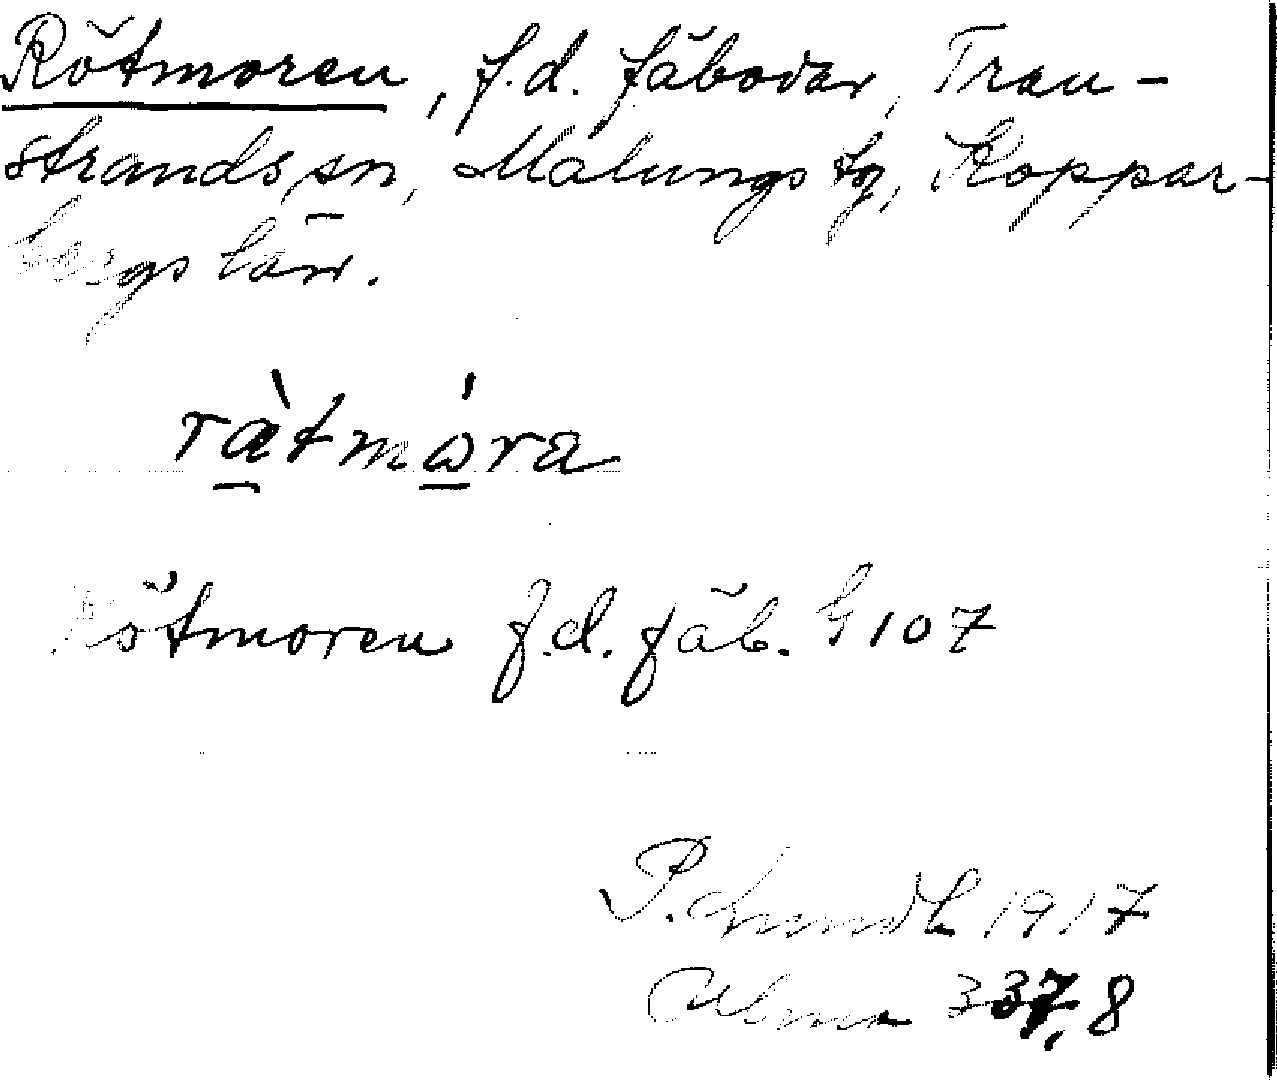 Rötmoren, f.d. fäbodar, Tran-
strands sn, Malungs tg, Koppar-
bergs län.
ràtmɷ́ra
Rötmoren f.d. fäb. G 107
P. Lundh 1917
Alma 337, 8